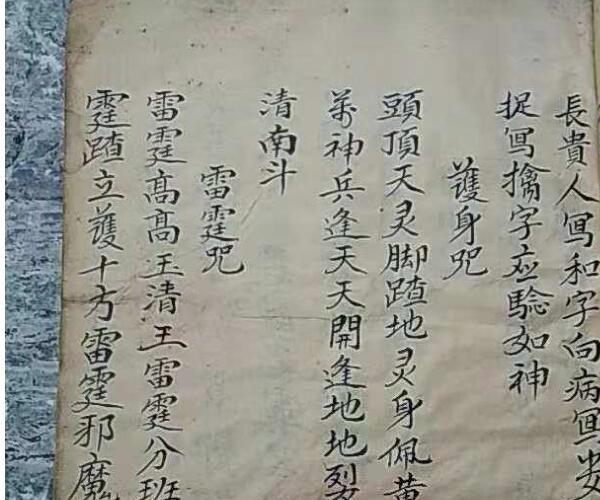 長貴人冩和字向病冩安
捉冩擒字应騐如神
護身咒
頭頂天灵脚踏地灵身佩黄
萬神兵逢天天開逢地地裂
清南斗
雷霆咒
雷霆髙髙玉清王雷霆分班
霆踏立護十方雷霆邪魔